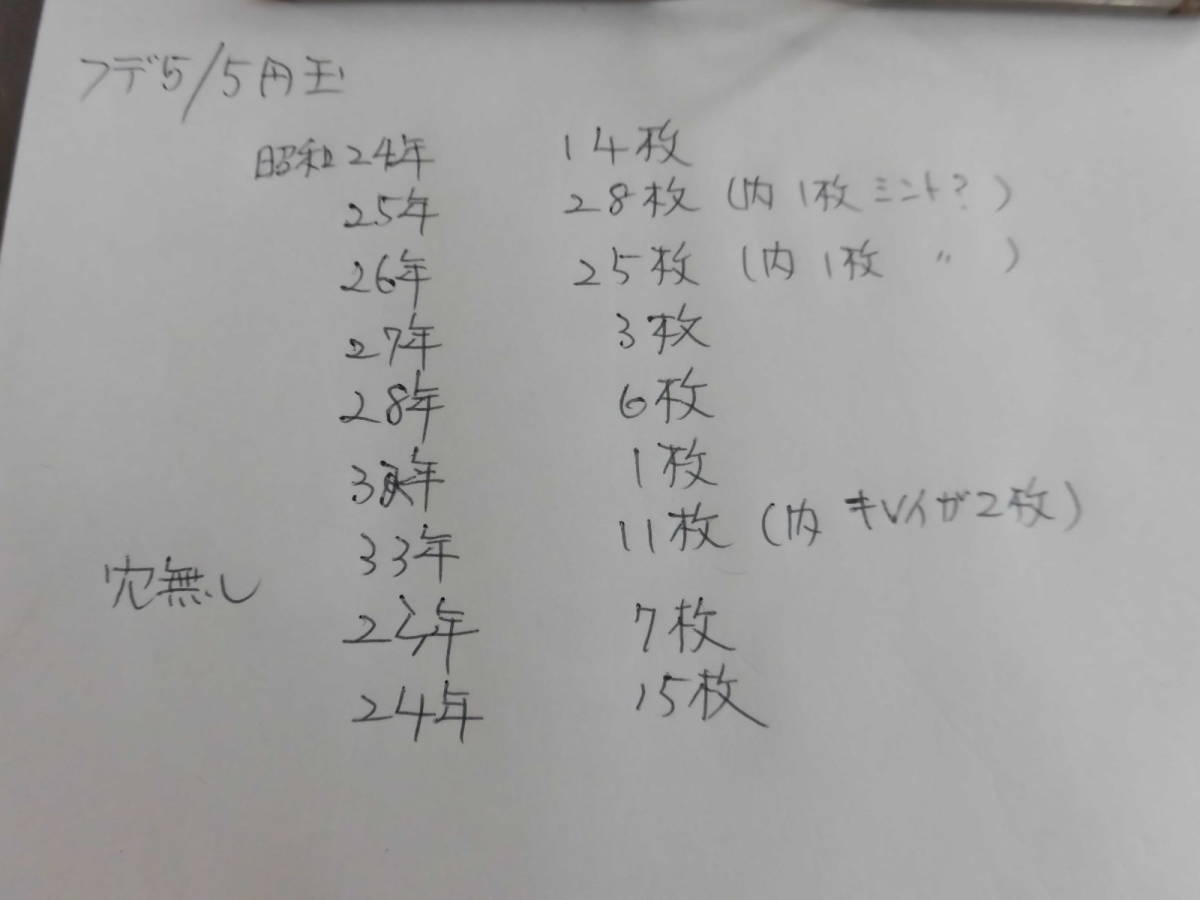 フデ5/5円玉
昭和24年 14枚
25年 28枚 (内1枚ミント?)
26年 25枚 (内1枚 〃 )
27年 3枚
28年 6枚
1枚
33年 11枚 (内 キレイが2枚)
穴無し
23年 7枚
24年 15枚